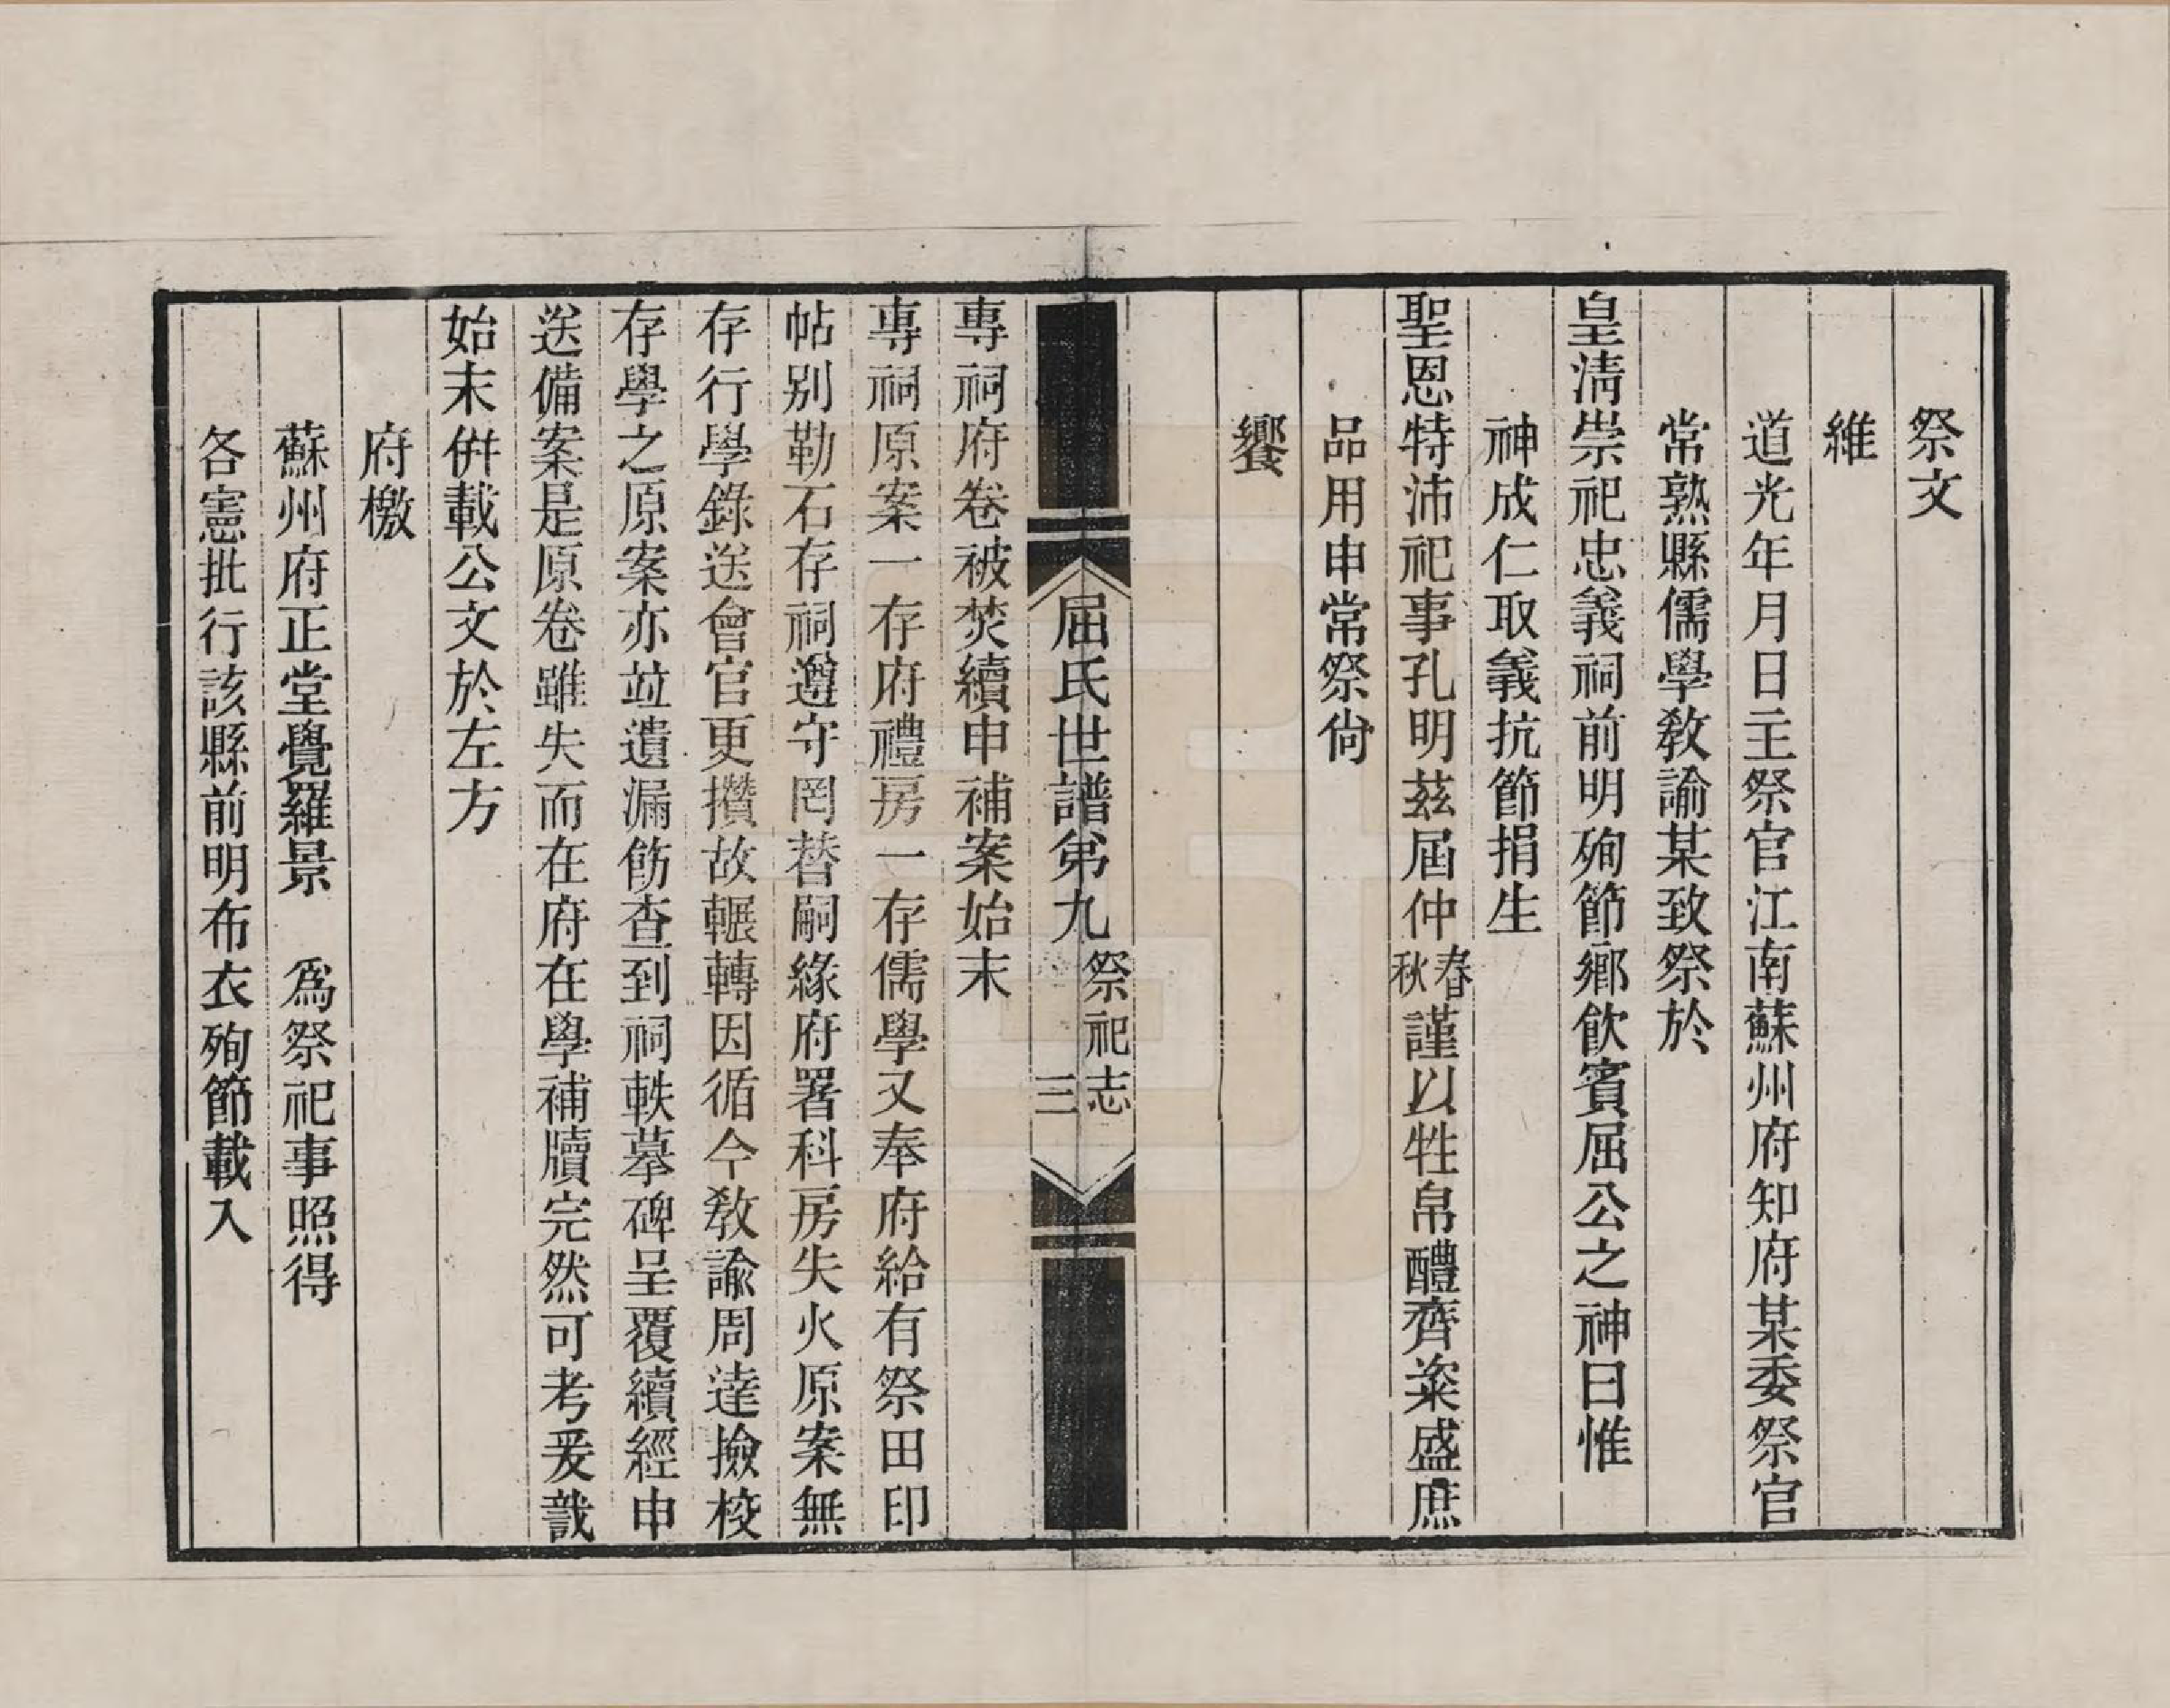 祭文
維
道光年月日主祭官江南蘇州府知府某委祭官
常熟縣儒學敎諭某致祭於
皇淸崇祀忠義祠前明殉節鄕飮賓屈公之神曰惟
神成仁取義抗節捐生
聖恩特沛祀事孔明茲屆仲春秋謹以牲帛醴齊粢盛庶
品用申常祭尙
饗
屈氏世譜弟九 祭祀志 三
專祠府卷被焚續申補案始末
專祠原案一存府禮房一存儒學又奉府給有祭田印
帖别勒石存祠遵守罔替嗣緣府署科房失火原案無
存行學錄送會官更攢故輾轉因循今敎諭周逵撿校
存學之原案亦竝遺漏飭查到祠軼摹碑呈覆續經申
送備案是原卷雖失而在府在學補牘完然可考爰識
始末併載公文於左方
府檄
蘇州府正堂覺羅景 爲祭祀事照得
各憲批行該縣前明布衣殉節載入